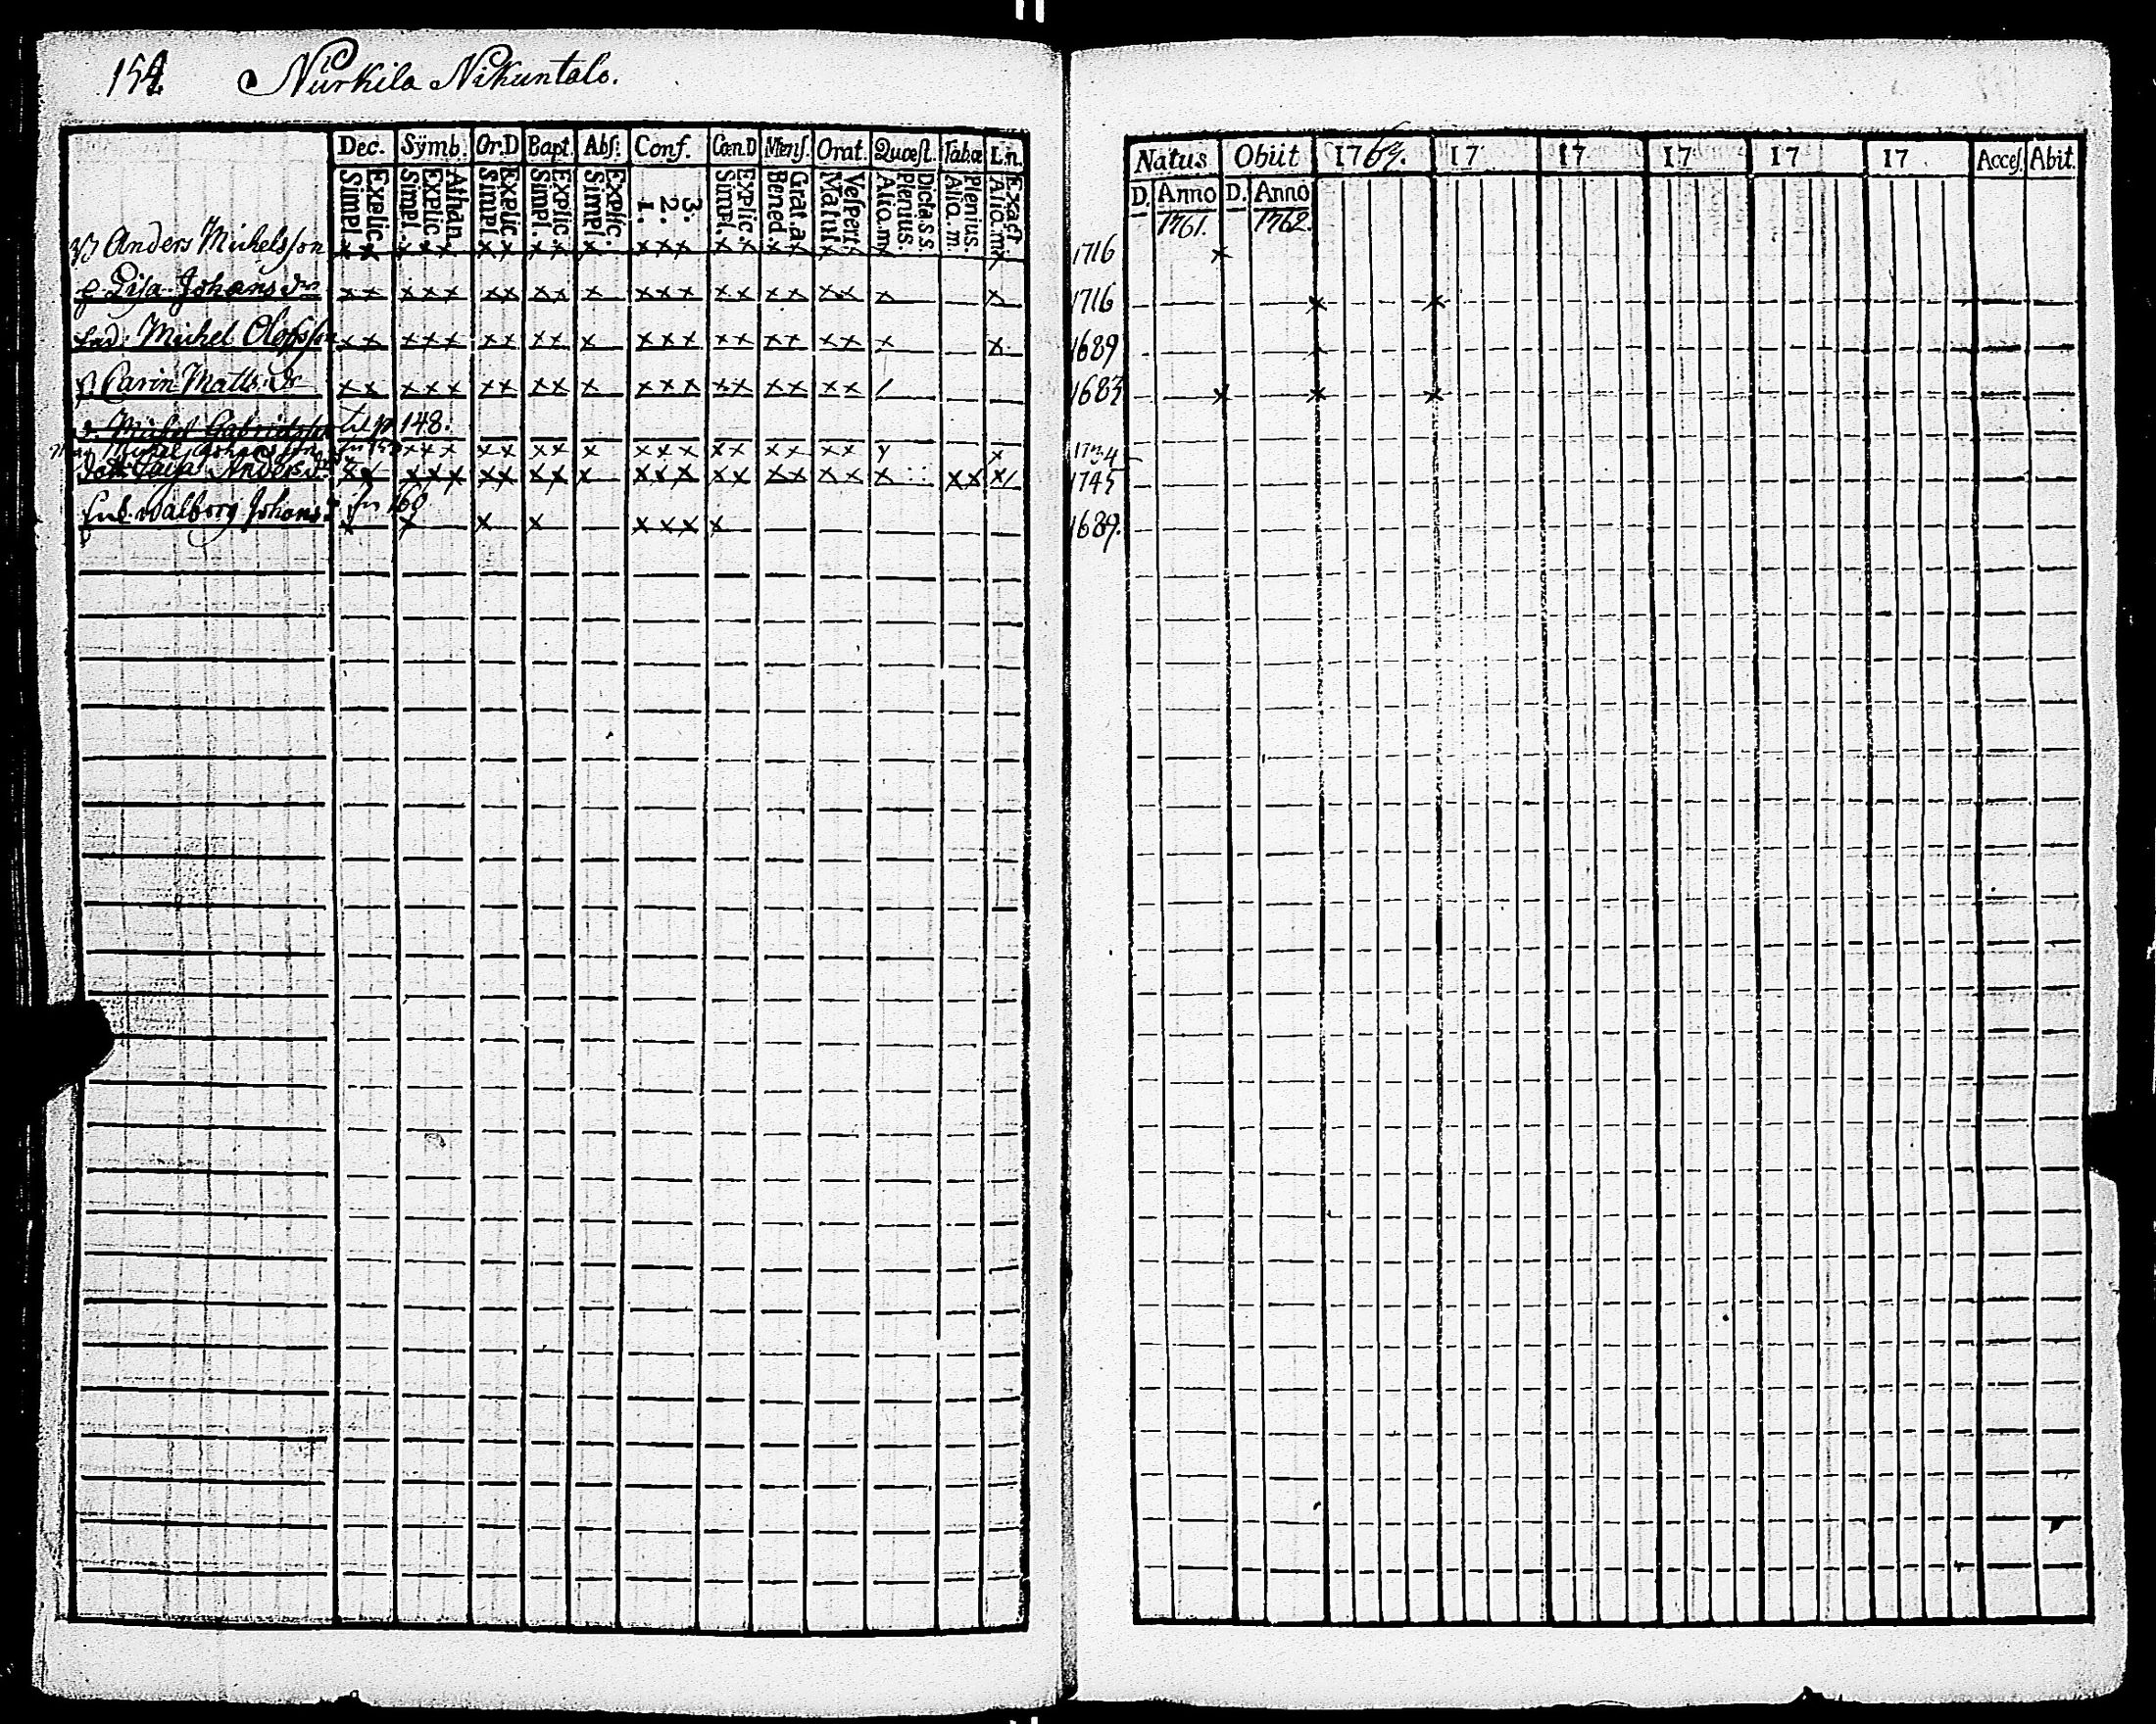 154 Nurkila Nikuntalo.
Dec. Sÿmb. Or.D Bapt. Abſ: Conf. Cœn.D Menſ. Orat. Quœſt. Tab.œ L.n.
Simpl. Explic. Simpl. Explic. Athan. Simpl. Explic. Simpl. Explic. Simpl. Explic. 1. 2. 3. Simpl. Explic. Bened. Grat.a Matut. Veſpert. Alio.m. Plenius. Dicta.s.s. Alio.m. Plenius. Alio.m. Exact.
Natus Obiit 1763. 17 17 17 17 17 Acceſ. Abit.
D. Anno D. Anno
1761. 1762.
Anders Michelsson x x x x x x x x x x x x x x x x x x x x x 1716 x
Lisa Johans dr x x x x x x x x x x x x x x x x x x x x x 1716 x x
Michel Olofsson x x x x x x x x x x x x x x x x x x x x x 1689
Carin Matts dr x x x x x x x x x x x x x x x x x x x / 1683 x x x
Michel Gabrielsson til p 148.
Michel Johansson x x x x x x x x x x x x x x x x x 1734
Caisa Anders dr x x x x x x x x x x x x x x x x x x x x x x x x 1745
Walborg Johans fr 160 x x x x x x x x 1689.